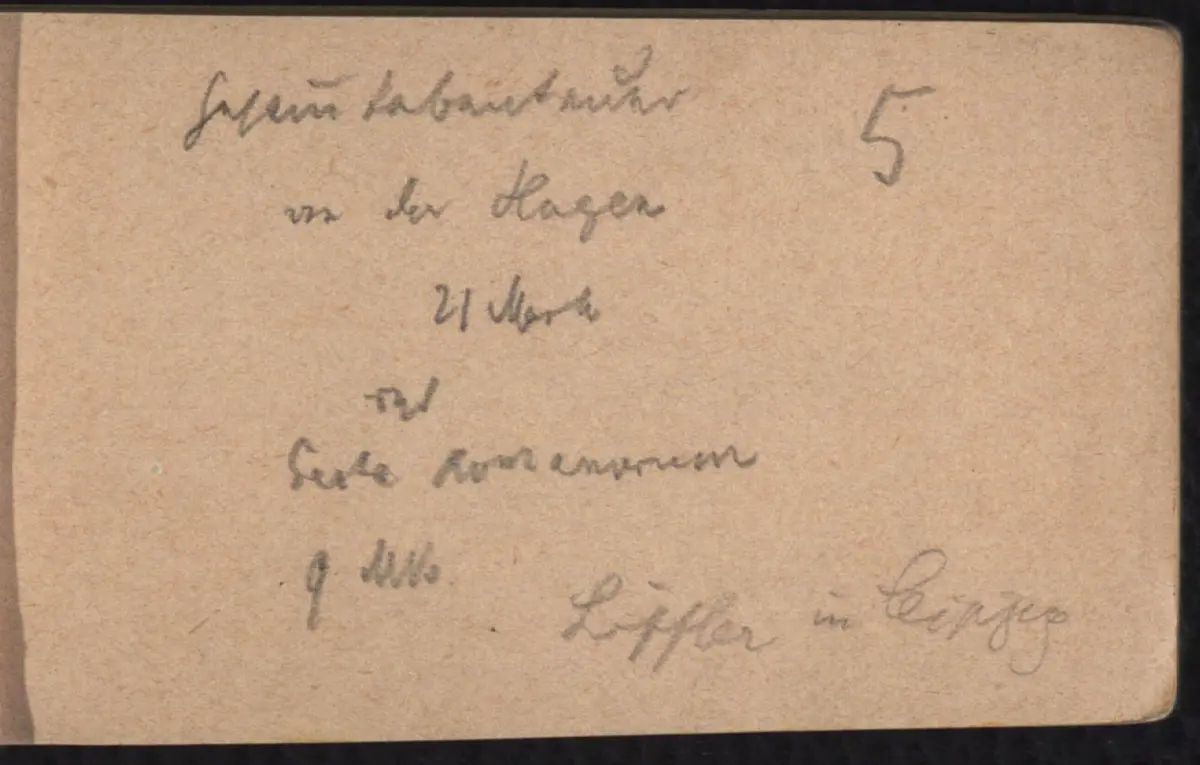 Gesam̄tabenteuer 5
von der Hagen
21 Mark
und
Gesta Romanorum
9 Mk
Löffler in Leipzig